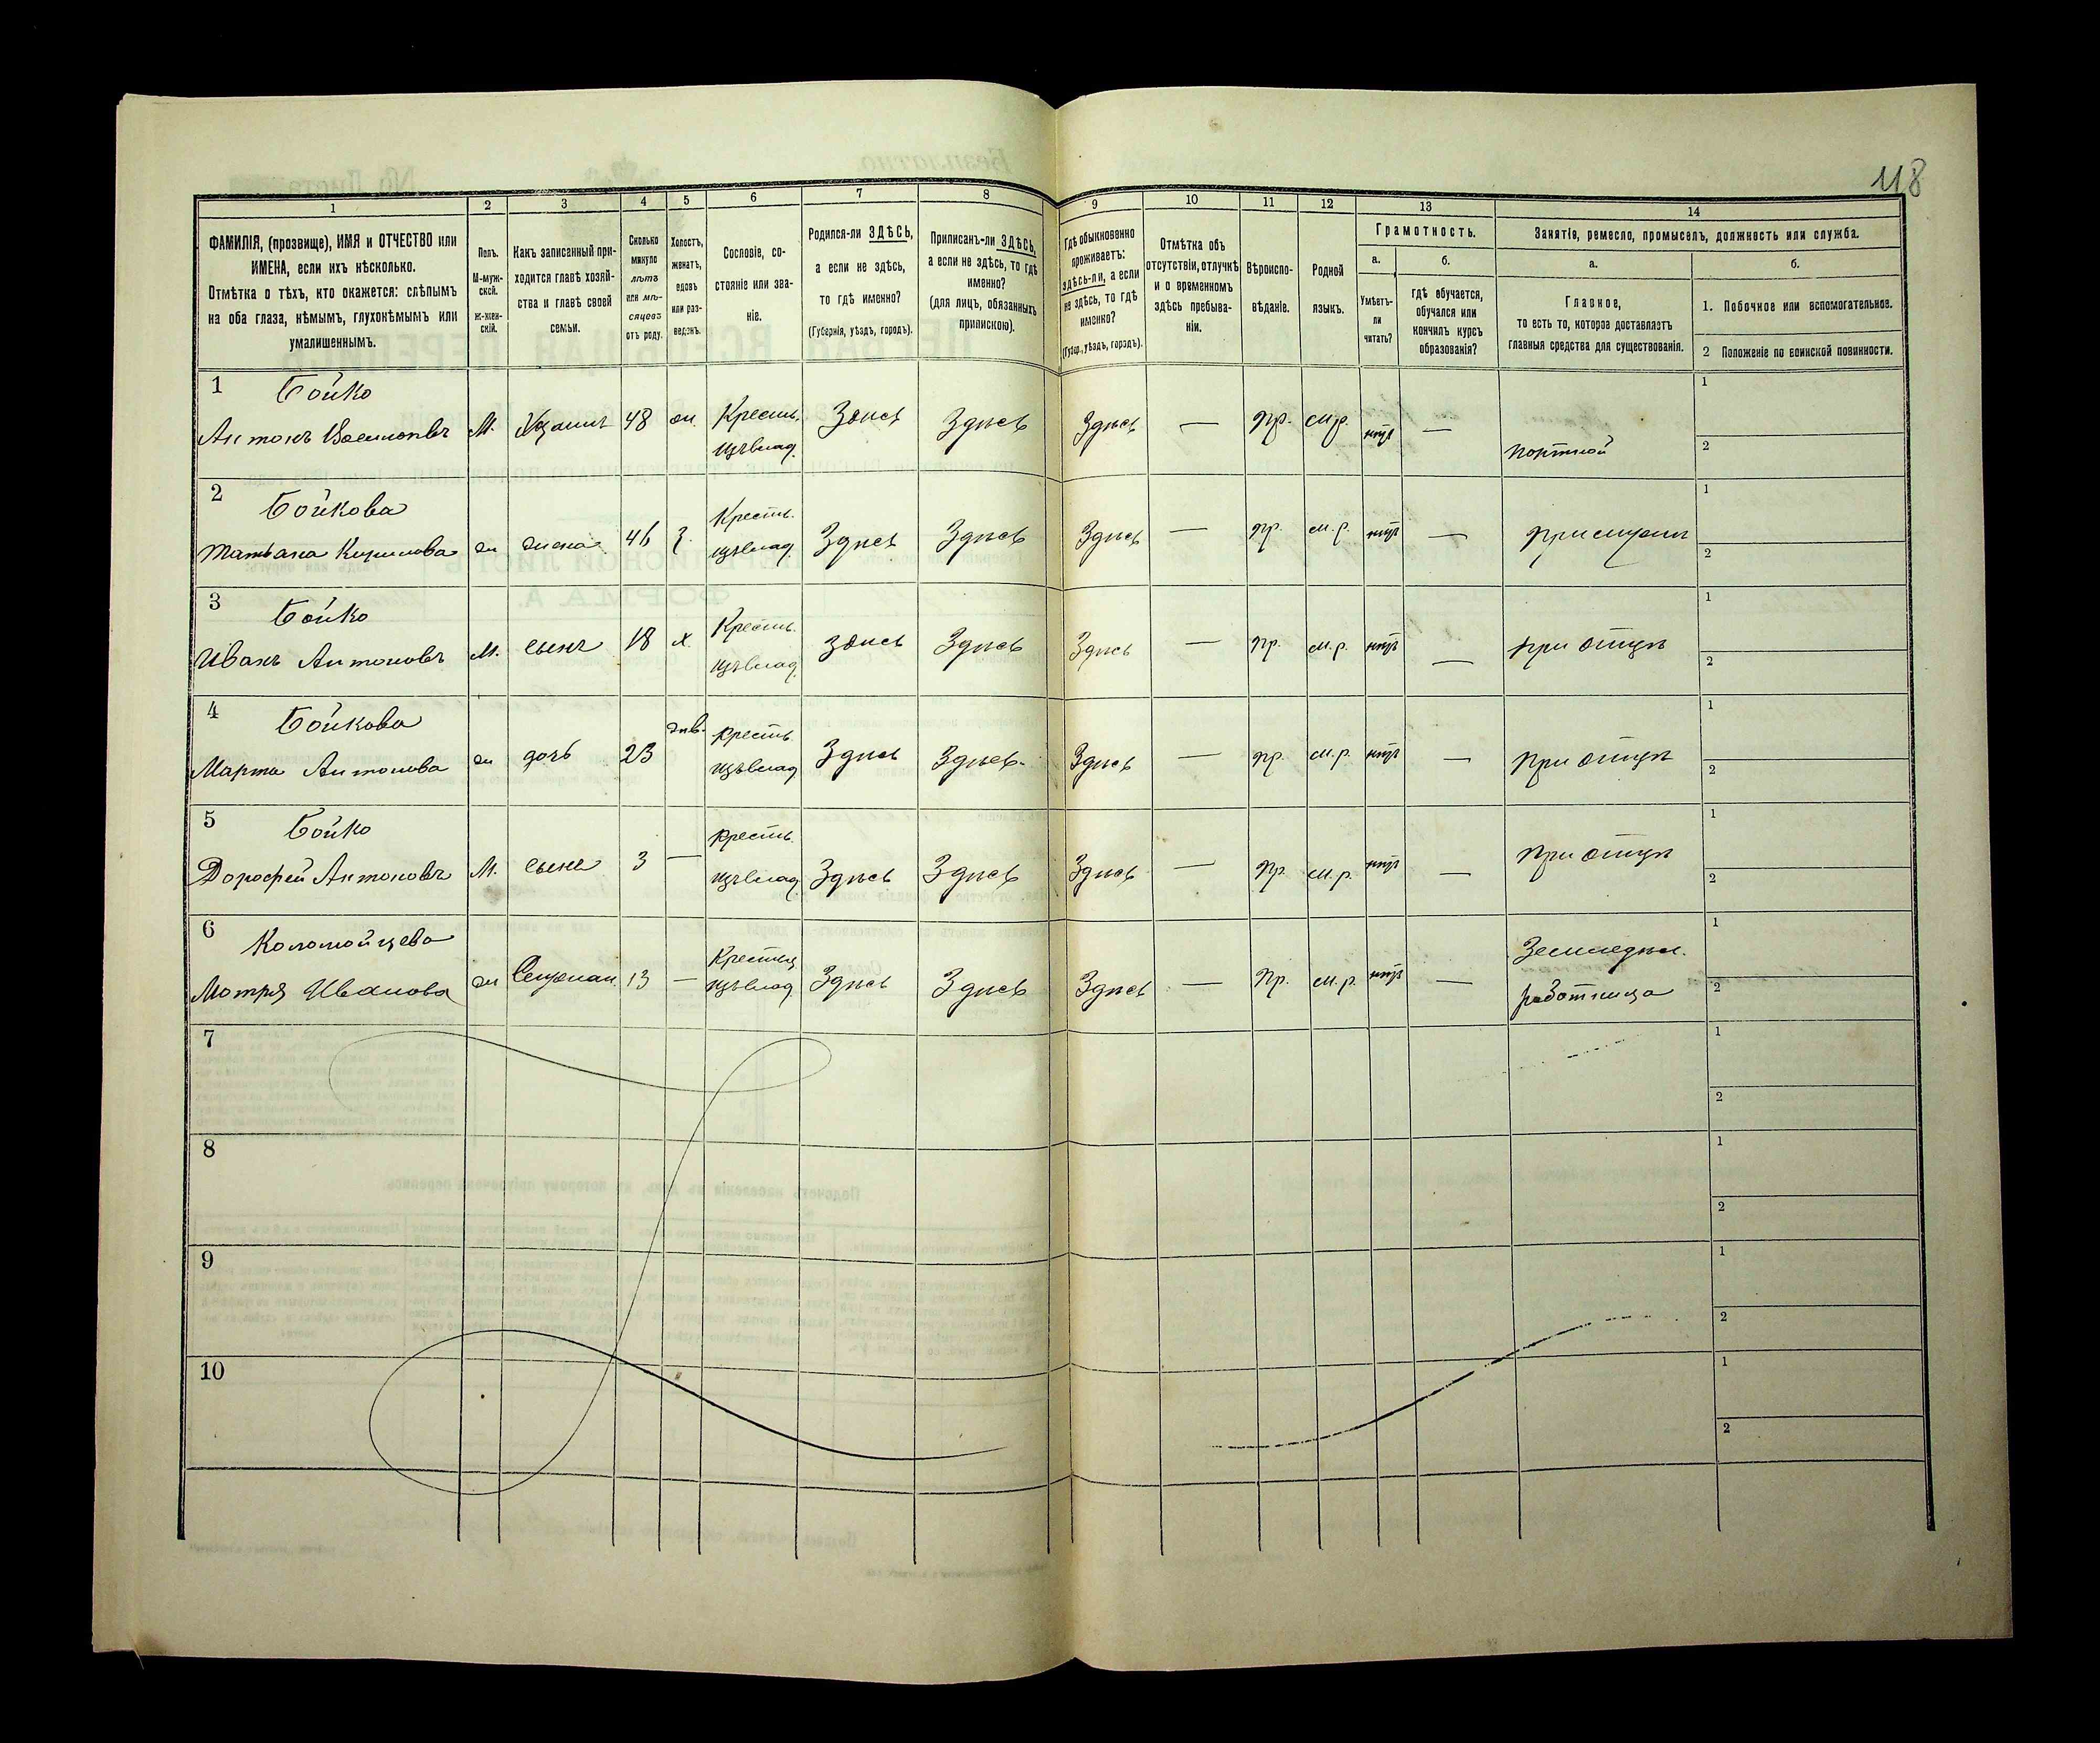 118
1
2
3
4
5
6
7
8
9
10
11
12
13
14
ФАМИЛІЯ, (прозвище), ИМЯ и ОТЧЕСТВО или
ИМЕНА, если ихъ нѣсколько.
Отмѣтка о тѣхъ, кто окажется: слѣпымъ
на оба глаза, нѣмымъ, глухонѣмымъ или
умалишеннымъ.
Полъ.
М-муж-
ской.
ж-жен-
скій.
Какъ записанный при-
ходится главѣ хозяй-
ства и главѣ своей
семьи.
Сколько
минуло
лѣтъ
или мѣ-
сяцевъ
отъ роду.
Холостъ,
женатъ,
вдовъ
или раз-
веденъ.
Сословіе, со-
стояніе или зва-
ніе.
Родился-ли ЗДѢСЬ,
а если не здѣсь,
то гдѣ именно?
(Губернія, уѣздъ, городъ).
Приписанъ-ли ЗДѢСЬ,
а если не здѣсь, то гдѣ
именно?
(для лицъ, обязанныхъ
припискою).
Гдѣ обыкновенно
проживаетъ:
здѣсь-ли, а если
не здѣсь, то гдѣ
именно?
(Губер., уѣздъ, городъ).
Отмѣтка объ
отсутствіи, отлучкѣ
и о временномъ
здѣсь пребыва-
ніи.
Вѣроиспо-
вѣданіе.
Родной
языкъ.
Грамотность.
а.
Умѣетъ-
ли
читать?
б.
гдѣ обучается,
обучался или
кончилъ курсъ
образованія?
Занятіе, ремесло, промыселъ, должность или служба.
а.
Главное,
то есть то, которое доставляетъ
главныя средства для существованія.
б.
1. Побочное или вспомогательное.
2 Положеніе по воинской повинности.
1 Бойко
Антонъ М. 48 ж. Кресть. Здѣсь Здѣсь Здѣсь — пр. м.р. нѣтъ — портной 1 2
2 Бойкова
Татьана Кирилова ж жена 46 з. Кресть. Здѣсь Здѣсь Здѣсь — пр. м.р. нѣтъ — 1 2
3 Бойко
Иванъ Антоновъ М. сынъ 18 х. Кресть. здѣсь Здѣсь Здѣсь — пр. м.р. нѣтъ — при отцѣ 1 2
4 Бойкова
Марта Антонова ж дочь 23 дѣв. кресть. Здѣсь Здѣсь Здѣсь — пр. м.р. нѣтъ — при отцѣ 1 2
5 Бойко
Дорофей Антоновъ М. сынъ 3 — кресть. Здѣсь Здѣсь Здѣсь — пр. м.р. нѣтъ — при отцѣ 1 2
6 Коломойцева
Мотря Иванова ж 13 — Здѣсь Здѣсь Здѣсь — пр. м.р. нѣтъ — Земледѣл. работница 1 2
7 1 2
8 1 2
9 1 2
10 1 2